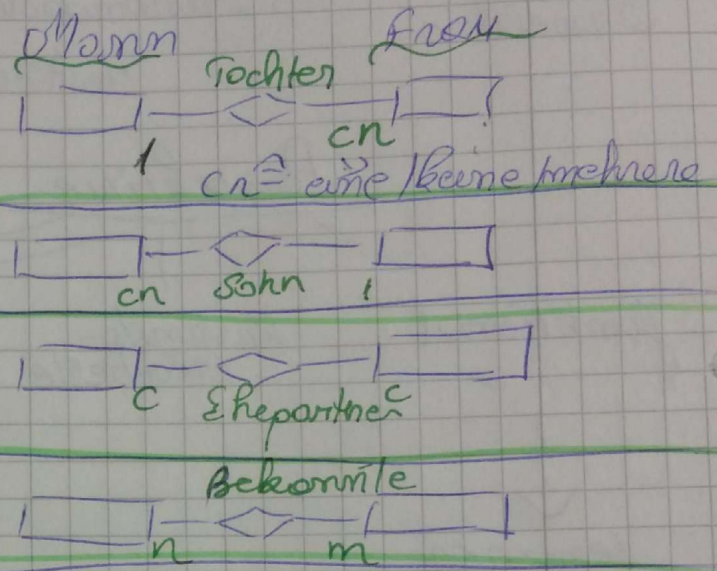 Mann Frau
Tochter
1 cn
cn ≙ eine/keine/mehrere
cn Sohn 1
c Ehepartner c
Bekannte
n m